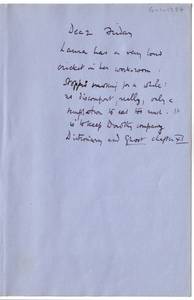 Dear Friday
Laura has a very loud
cricket in her workroom.
Stopped smoking for a while:
no discomfort really, only a
temptation to eat too much. It
is to keep Dorothy company.
Dictionary and Ghost chapter XI